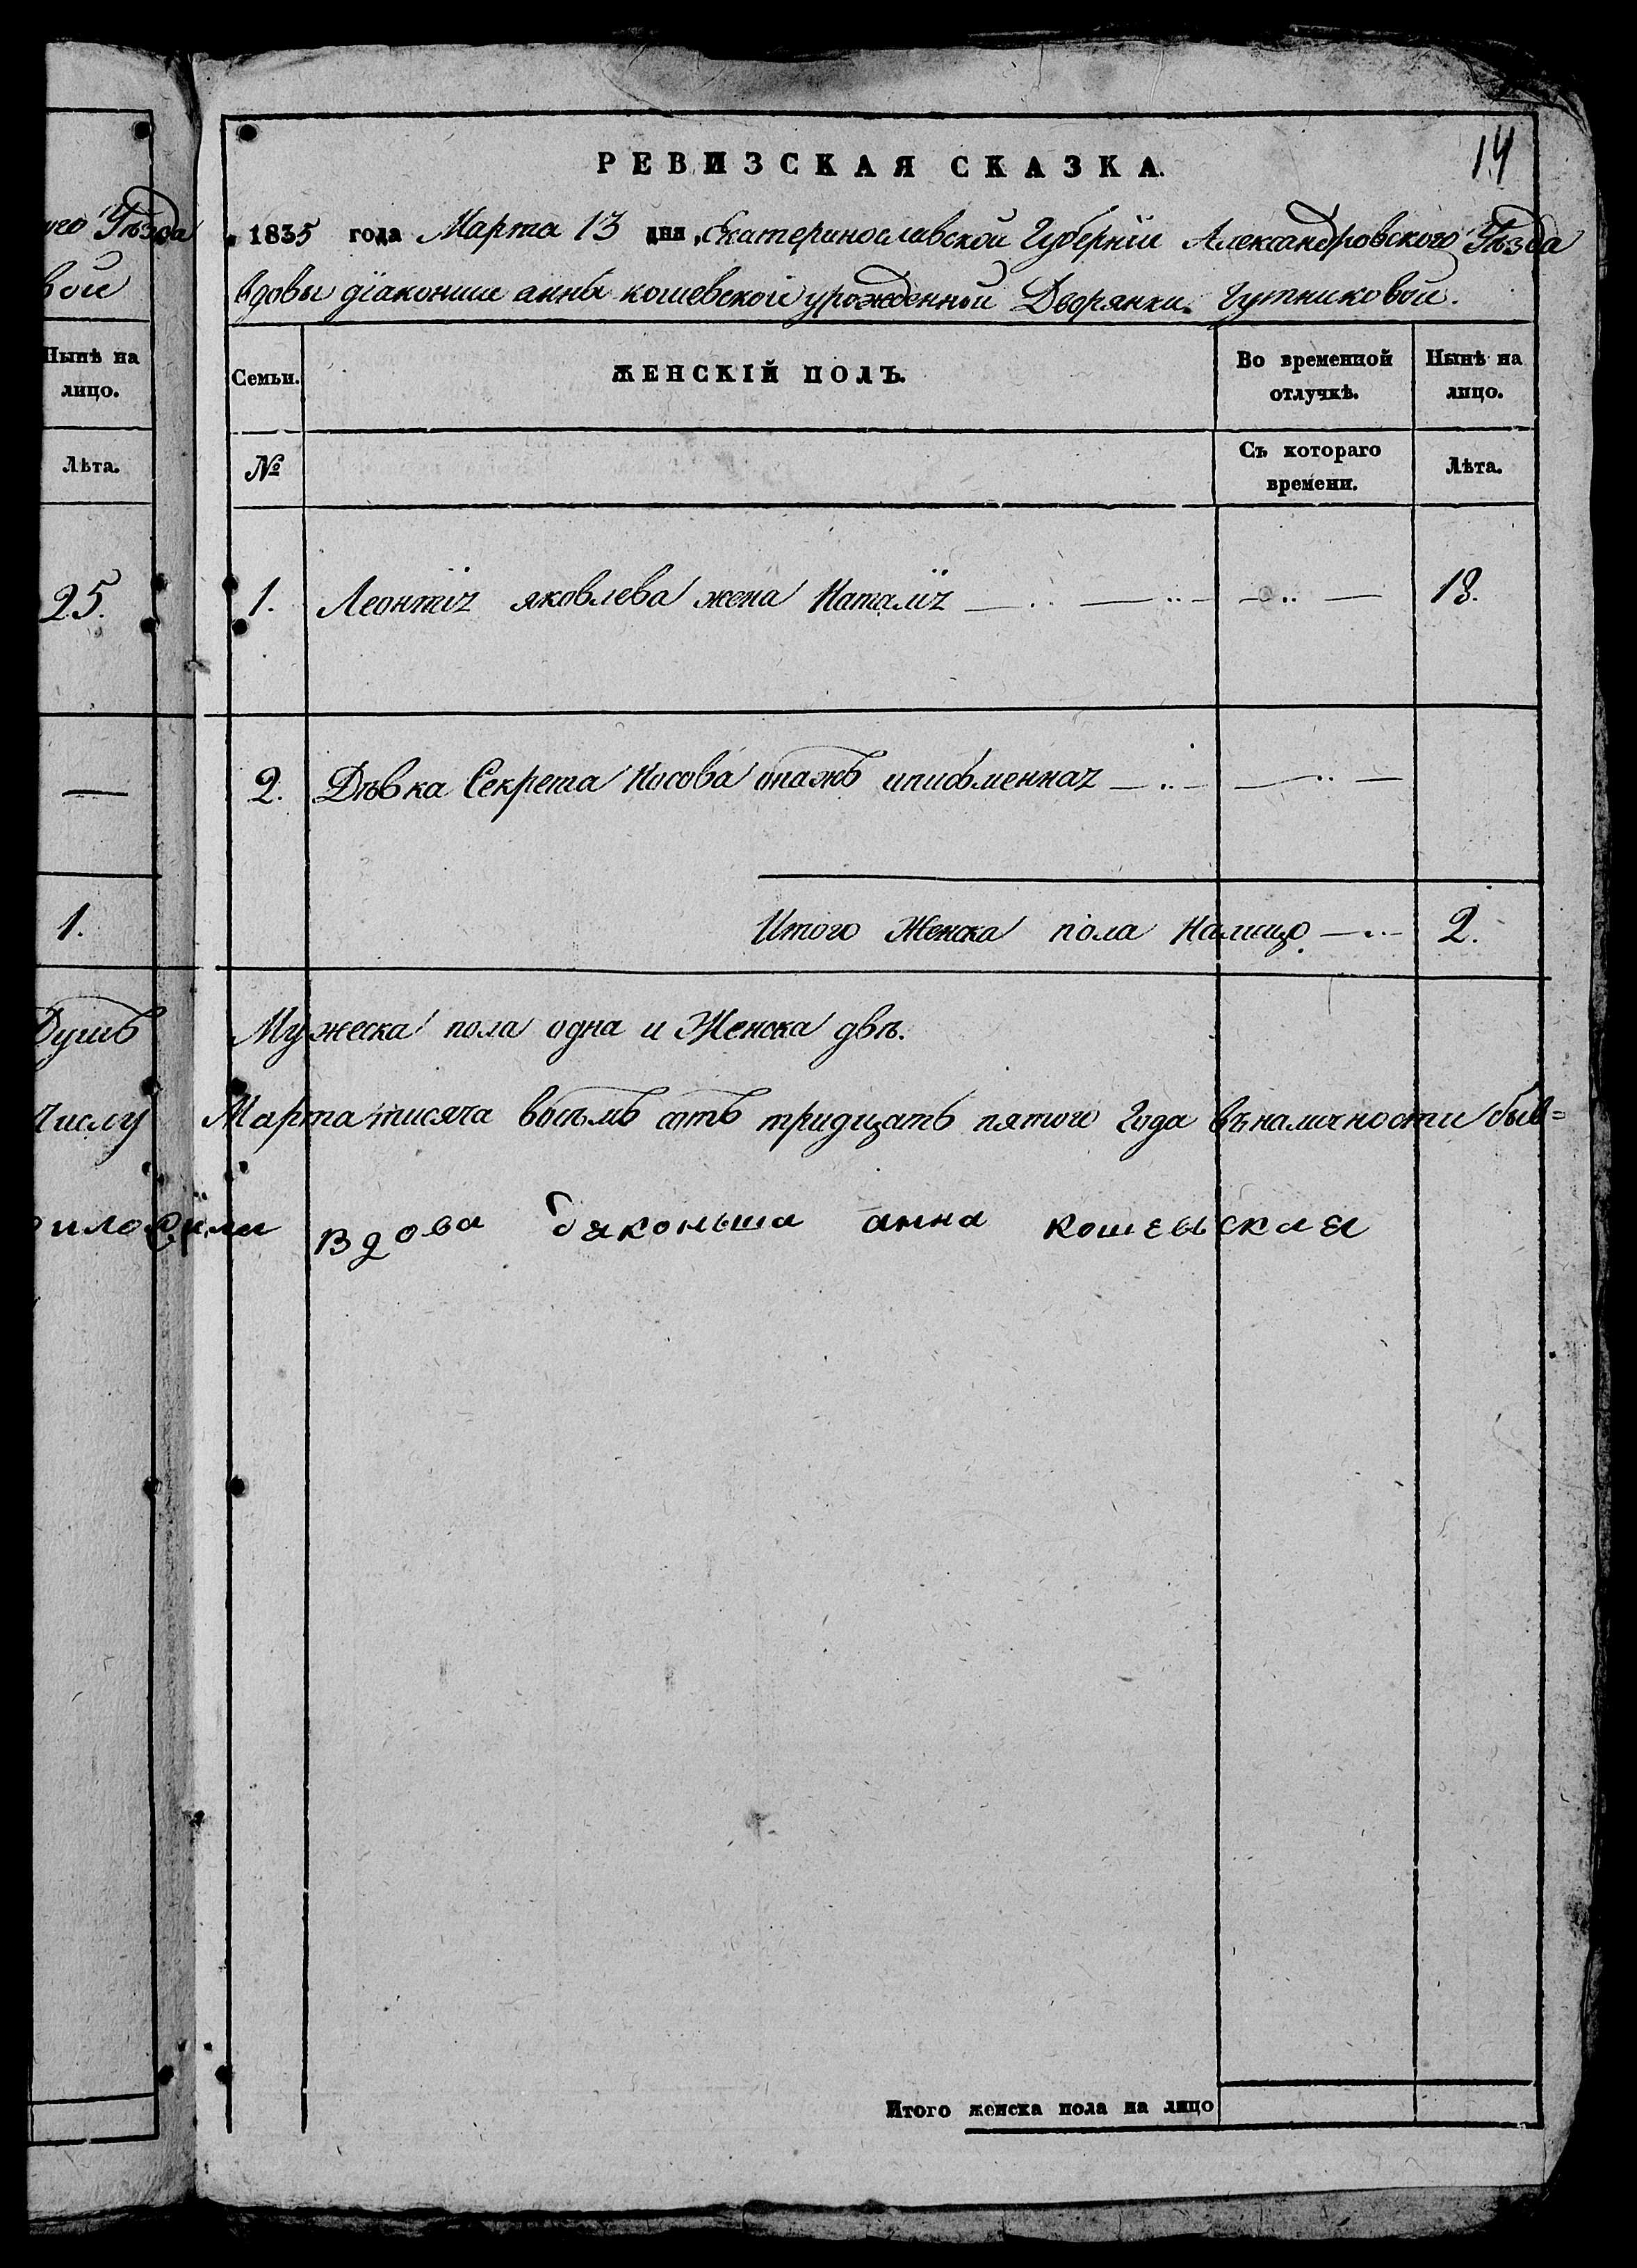 14
РЕВИЗСКАЯ СКАЗКА.
1835 года Марта 13 дня, Екатеринославской Губерніи Александровского Уѣзда
вдовы діаконши анны кошевской урожденной Дворянки Гутниковой.
Семьи. ЖЕНСКІЙ ПОЛЪ. Во временной отлучкѣ. Нынѣ на лицо.
№ Съ котораго времени. Лѣта.
1. Леонтія яковлева жена Наталія 18.
2. Дѣвка Секрета Носова
Итого Женска пола Налицо 2.
Мужеска пола одна и Женска двѣ.
Марта тисяча восѣмь сотъ тридцать пятого Года въналичности быв=
Вдова дяконьша анна кошевская
Итого женска пола на лицо
Уѣзда
вой
Нынѣ на лицо.
Лѣта.
25.
—
1.
Душъ
Числу